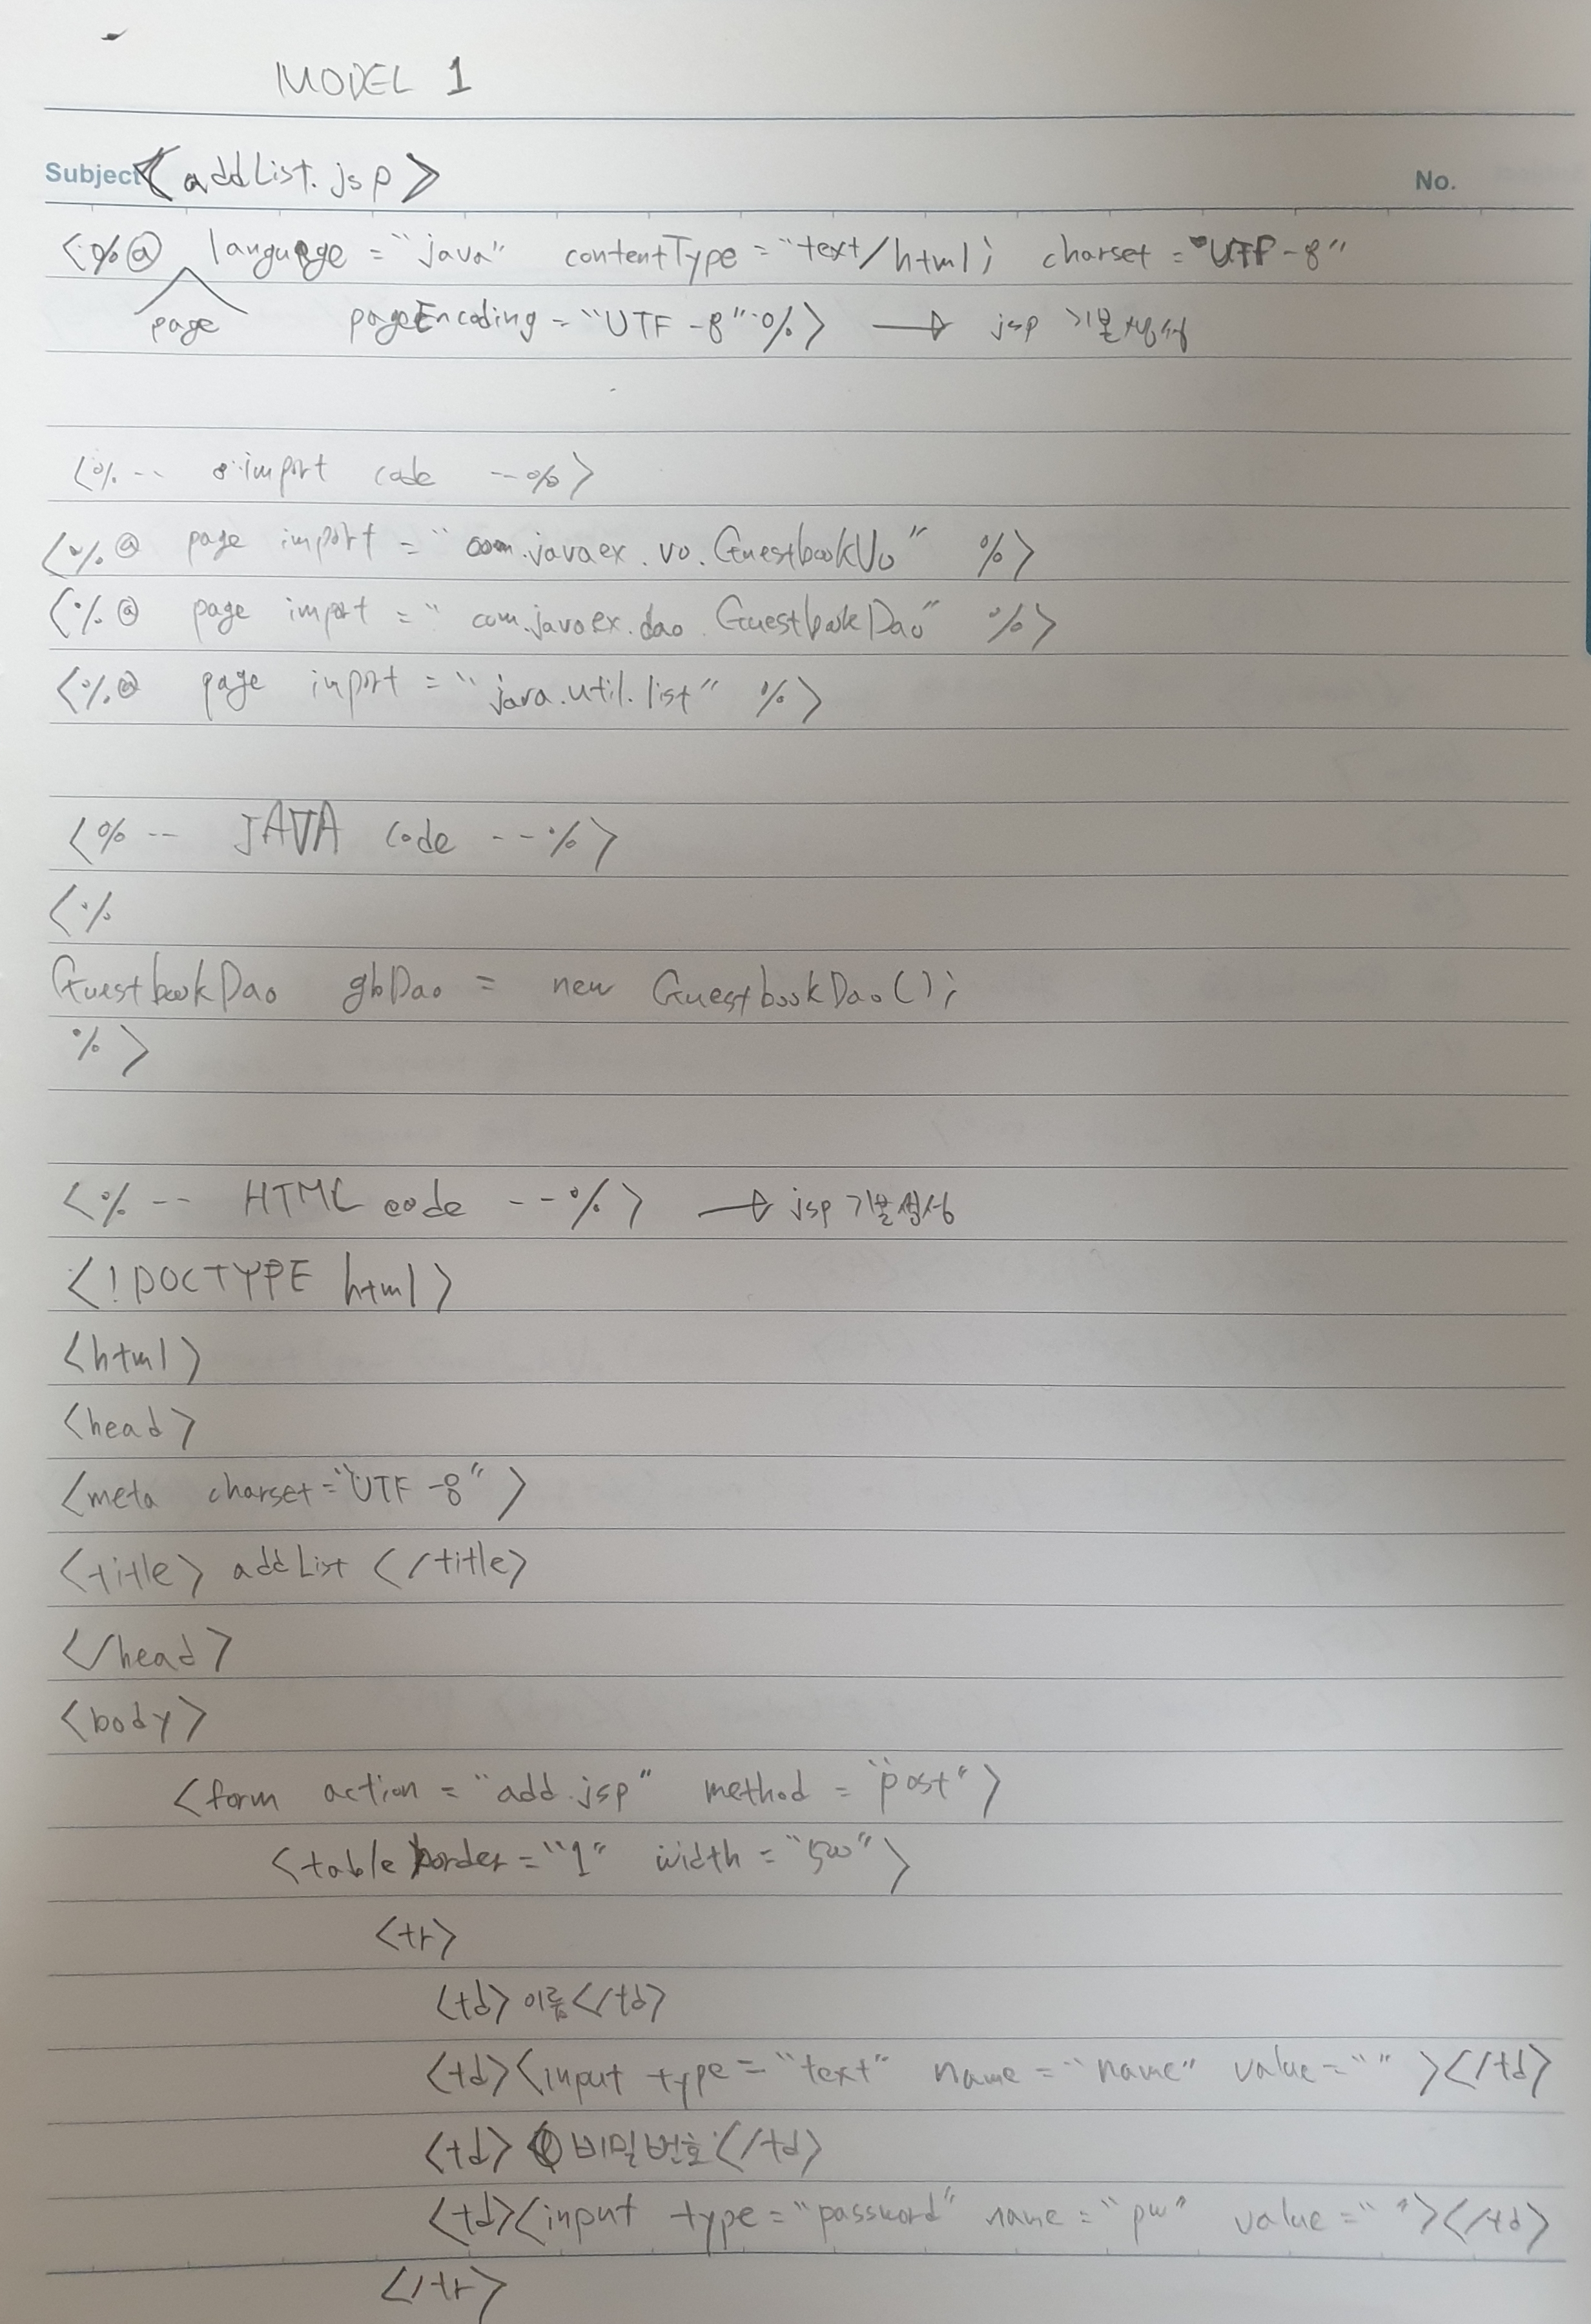 MODEL 1
Subject <addList.jsp> No.
<%@ language = "java" contentType = "text/html; charset = "UTF-8"
page pageEncoding = "UTF-8" %> → jsp 기본생성
<%-- import code --%>
<%@ page import = "com.javaex.vo.GuestbookVo" %>
<%@ page import = "com.javaex.dao.GuestbookDao" %>
<%@ page import = "java.util.list" %>
<%-- JAVA code --%>
<%
GuestbookDao gbDao = new GuestbookDao();
%>
<%-- HTML code --%> → jsp 기본생성
<!DOCTYPE html>
<html>
<head>
<meta charset="UTF-8">
<title> addList </title>
</head>
<body>
<form action = "add.jsp" method = "post">
<table border = "1" width = "500">
<tr>
<td>이름</td>
<td><input type = "text" name = "name" value = "" ></td>
<td> 비밀번호</td>
<td><input type = "password" name = "pw" value = " "></td>
</tr>